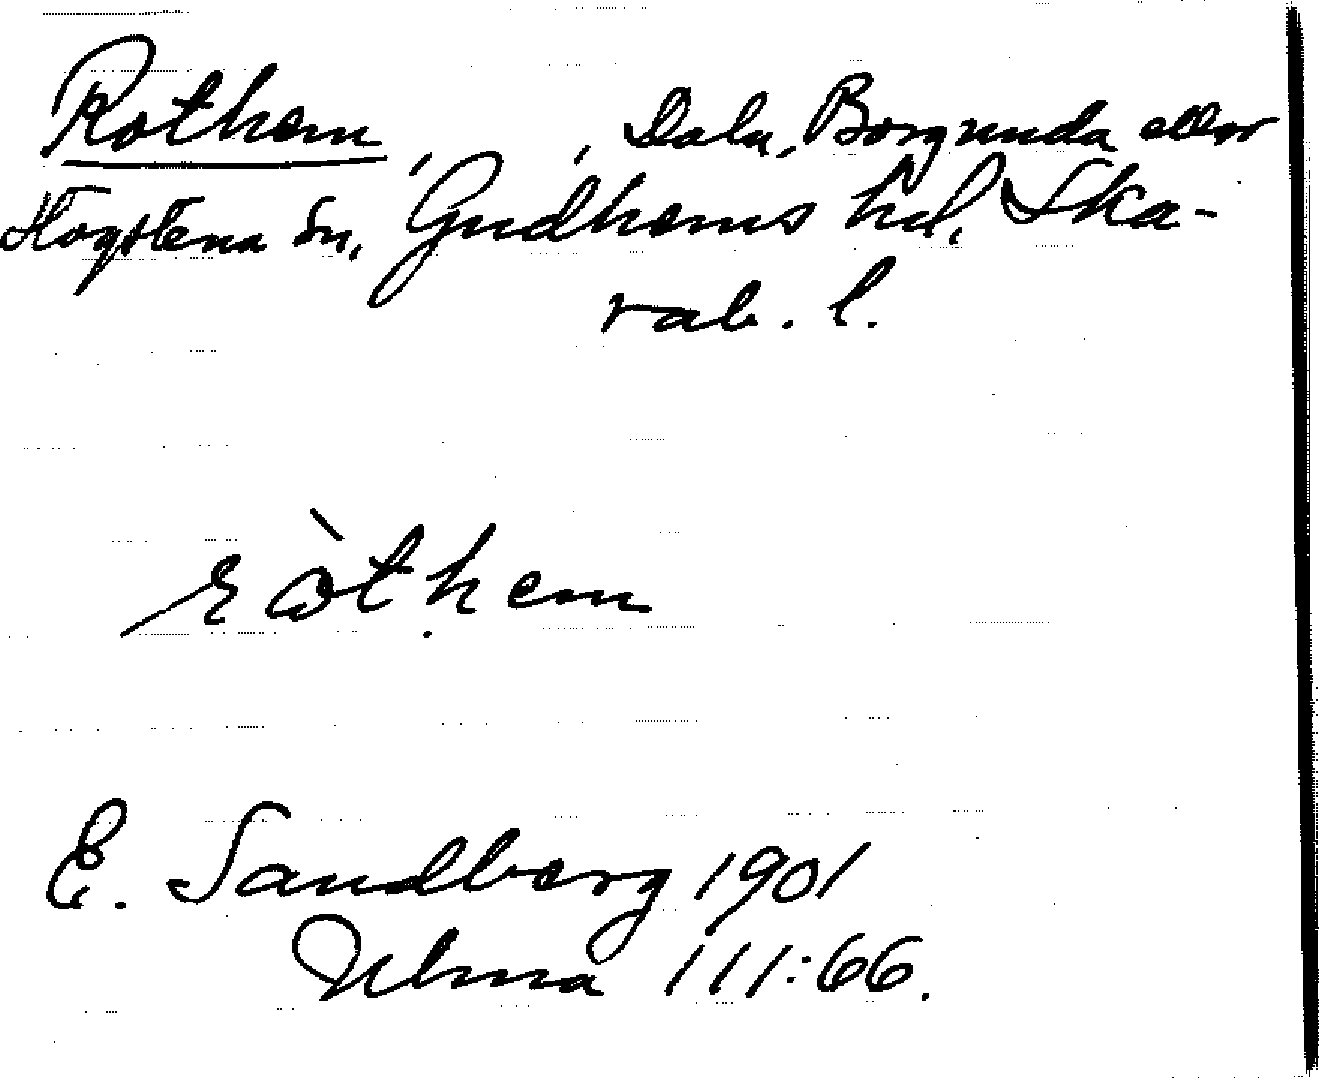 Rothem, , Dala, Borgunda eller
Hogstena sn, Gudhems hd, Ska-
rab. l.
ròt.hem
E. Sandberg 1901
Ulma 111:66.